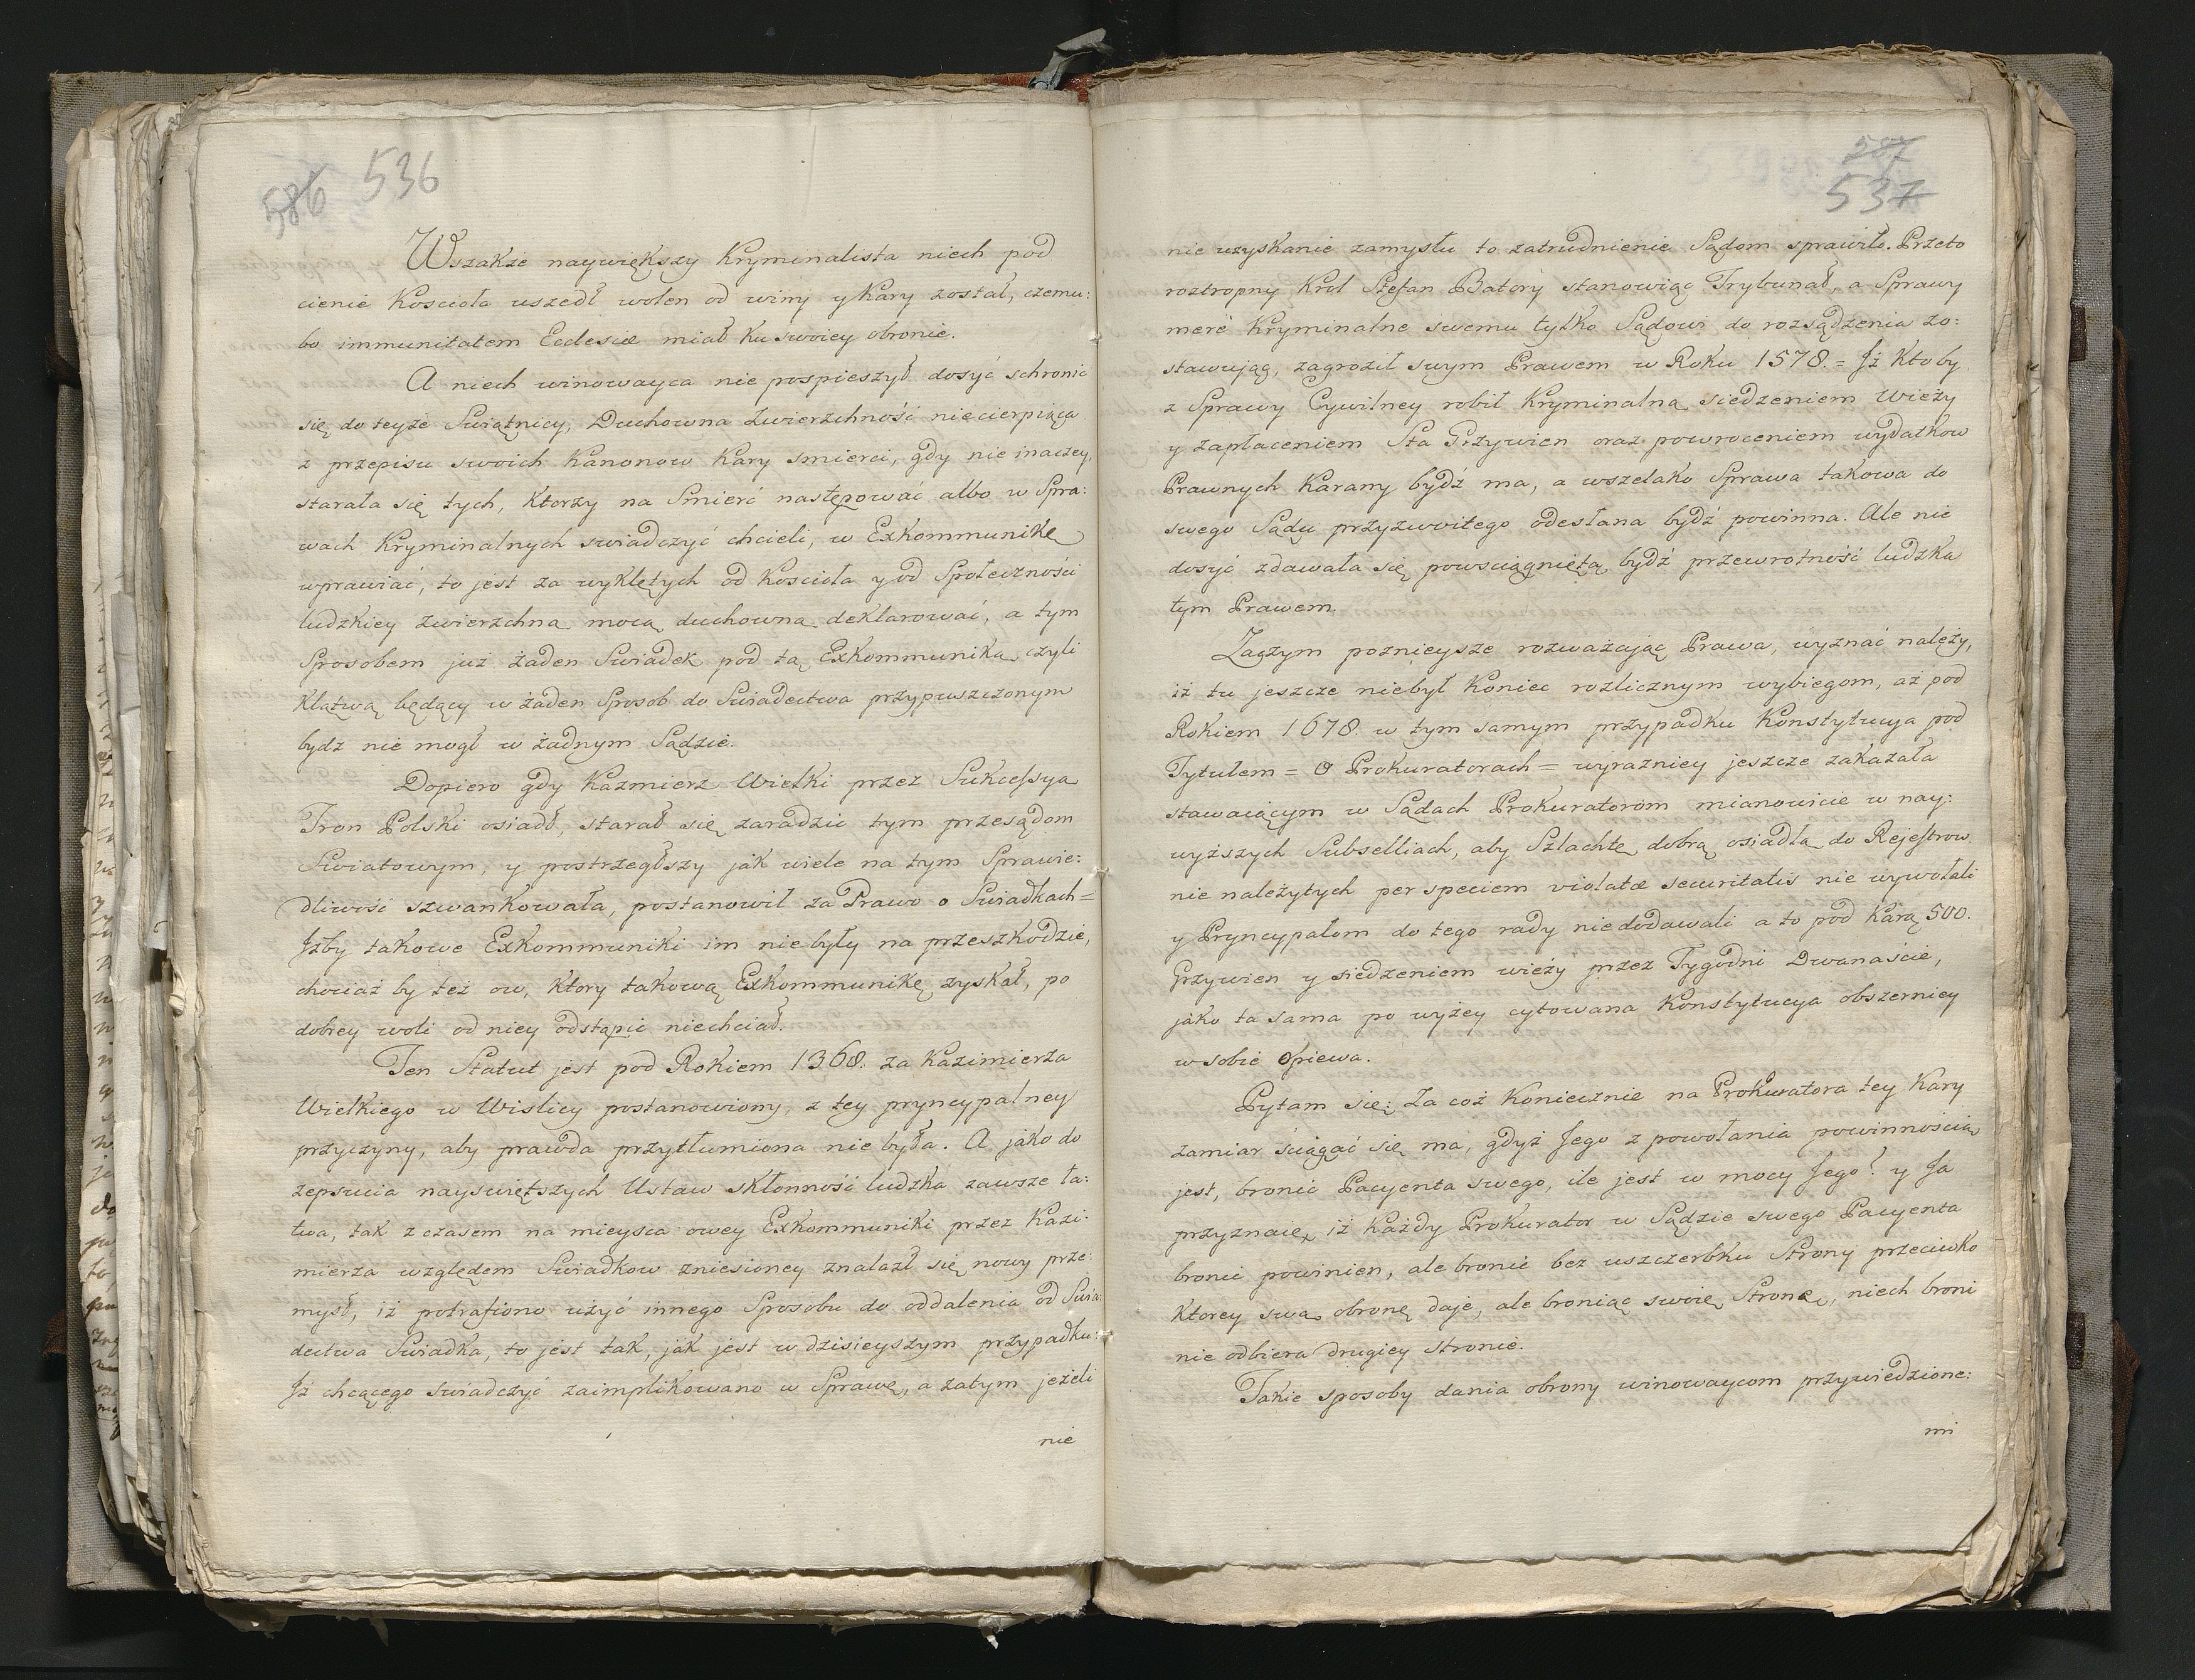 586 536
Wszakże naywiększy Kryminalista niech pod
cienie Koscioła uszedł wolen od winy y Kary został, czemu:
bo immunitatem Ecclesiæ miał ku swoiey obronie.
A niech winowayca nie pospieszył dosyć schronic
się do teyże Swiątnicy, Duchowna Zwierzchność niecierpiąca
z przepisu swoich Kanonow Kary smierci, gdy nie inaczey,
starała się tych, Ktorzy na Smierć następować albo w Spra:
wach Kryminalnych swiadczyć chcieli, w Exkommunikę
wprawiać, to jest za wyklętych od Koscioła y od Społeczności
ludzkiey zwierzchną mocą duchowną deklarować, a tym
Sposobem już żaden Swiadek pod tą Exkommuniką czyli
Klątwą będący w żaden Sposob do Swiadectwa przypuszczonym
bydz nie mogł w żadnym Sądzie.
Dopiero gdy Kazmierz Wielki przez Sukcessyą
Tron Polski osiadł, starał się zaradzic tym przesądom
Swiatowym, y postrzegłszy jak wiele na tym Sprawie:
dliwość szwankowała, postanowił za Prawo o Swiadkach =
Jżby takowe Exkommuniki im nie były na przeszkodzie,
chociaż by też ow, Ktory takową Exkommunikę zyskał, po
dobrey woli od niey odstąpic niechciał.
Ten Statut jest pod Rokiem 1368. za Kazimierza
Wielkiego w Wislicy postanowiony, z tey pryncypalney
przyczyny, aby prawda przytłumiona nie była. A jako do
zepsucia nayswiętszych Ustaw skłonność ludzka zawsze ła:
twa, tak z czasem na mieysca owey Exkommuniki przez Kazi:
mierza względem Swiadkow zniesioney znalazł się nowy prze:
mysł, iż potrafiono użyć innego Sposobu do oddalenia od Swia:
dectwa Swiadka, to jest tak, jak jest w dzisieyszym przypadku:
Jż chcącego swiadczyć zaimplikowano w Sprawę, a zatym jeżeli
nie
587
537
nie uzyskanie zamysłu to zatrudnienie Sądom sprawiło. Przeto
roztropny Krol Stefan Batory stanowiąc Trybunał, a Sprawy
merè Kryminalne swemu tylko Sądowi do rozsądzenia zo:
stawując, zagroził swym Prawem w Roku 1578. = Jż Ktoby
z Sprawy Cywilney robił Kryminalną siedzeniem Wieży
y zapłaceniem Sta Grzywien oraz powroceniem wydatkow
Prawnych Karany bydź ma, a wszelako Sprawa takowa do
swego Sądu przyzwoitego odesłana bydź powinna. Ale nie
dosyć zdawała się powsciągniętą bydź przewrotność ludzka
tym Prawem.
Zaczym poznieysze rozważając Prawa, wyznać należy,
iż tu jeszcze niebył Koniec rozlicznym wybiegom, aż pod
Rokiem 1678. w tym samym przypadku Konstytucya pod
Tytułem = O Prokuratorach = wyrazniey jeszcze zakazała
stawaiącym w Sądach Prokuratorom mianowicie w nay:
wyższych Subselliach, aby Szlachtę dobrą osiadłą do Rejestrow
nie należytych per speciem violatæ securitatis nie wywołali
y Pryncypałom do tego rady niedodawali a to pod Karą 500.
Grzywien y siedzeniem wieży przez Tygodni Dwanaście,
jako ta sama po wyżey cytowana Konstytucya obszerniey
w sobie opiewa.
Pytam się: Za coż Koniecznie na Prokuratora tey Kary
zamiar ściągać się ma, gdyż Jego z powołania powinnością
jest, bronić Pacyenta swego, ile jest w mocy Jego? y Ja
przyznaię, iż Każdy Prokurator w Sądzie swego Pacyenta
bronić powinien, ale bronić bez uszczerbku Strony przeciwko
Ktorey swą obronę daje, ale broniąc swoię Stronę, niech broni
nie odbiera drugiey stronie.
Takie sposoby dania obrony winowaycom przywiedzione:
mi